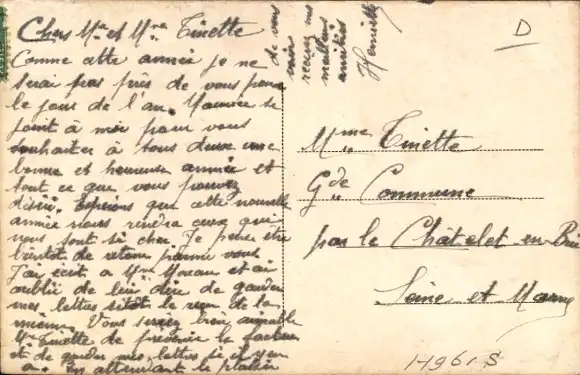 Chers Mr et Mme Tinette
Comme cette année je ne
serai pas près de vous pour
le jour de l'an. Maurice se
joint à moi pour vous
souhaiter à tous deux une
bonne et heureuse année et
tout ce que vous pouvez
désirer. Espérons que cette nouvelle
année nous rendra ceux qui
nous sont si cher. Je pense être
bientôt de retour parmi vous
J'ai écrit a Mme Moreau et ai
oublié de lui dire de garder
mes lettres sitôt le reçu de la
mienne. Vous seriez bien aimable
Mme Tinette de prévenir le facteur
et de garder mes lettres si il y en
a. En attendant le plaisir
de vous
voir
recevez mes
meilleurs
amitiés
Henriette
D
Mme Tinette
Gde Commune
par le Châtelet en Brie
Seine et Marne
1-1961 S